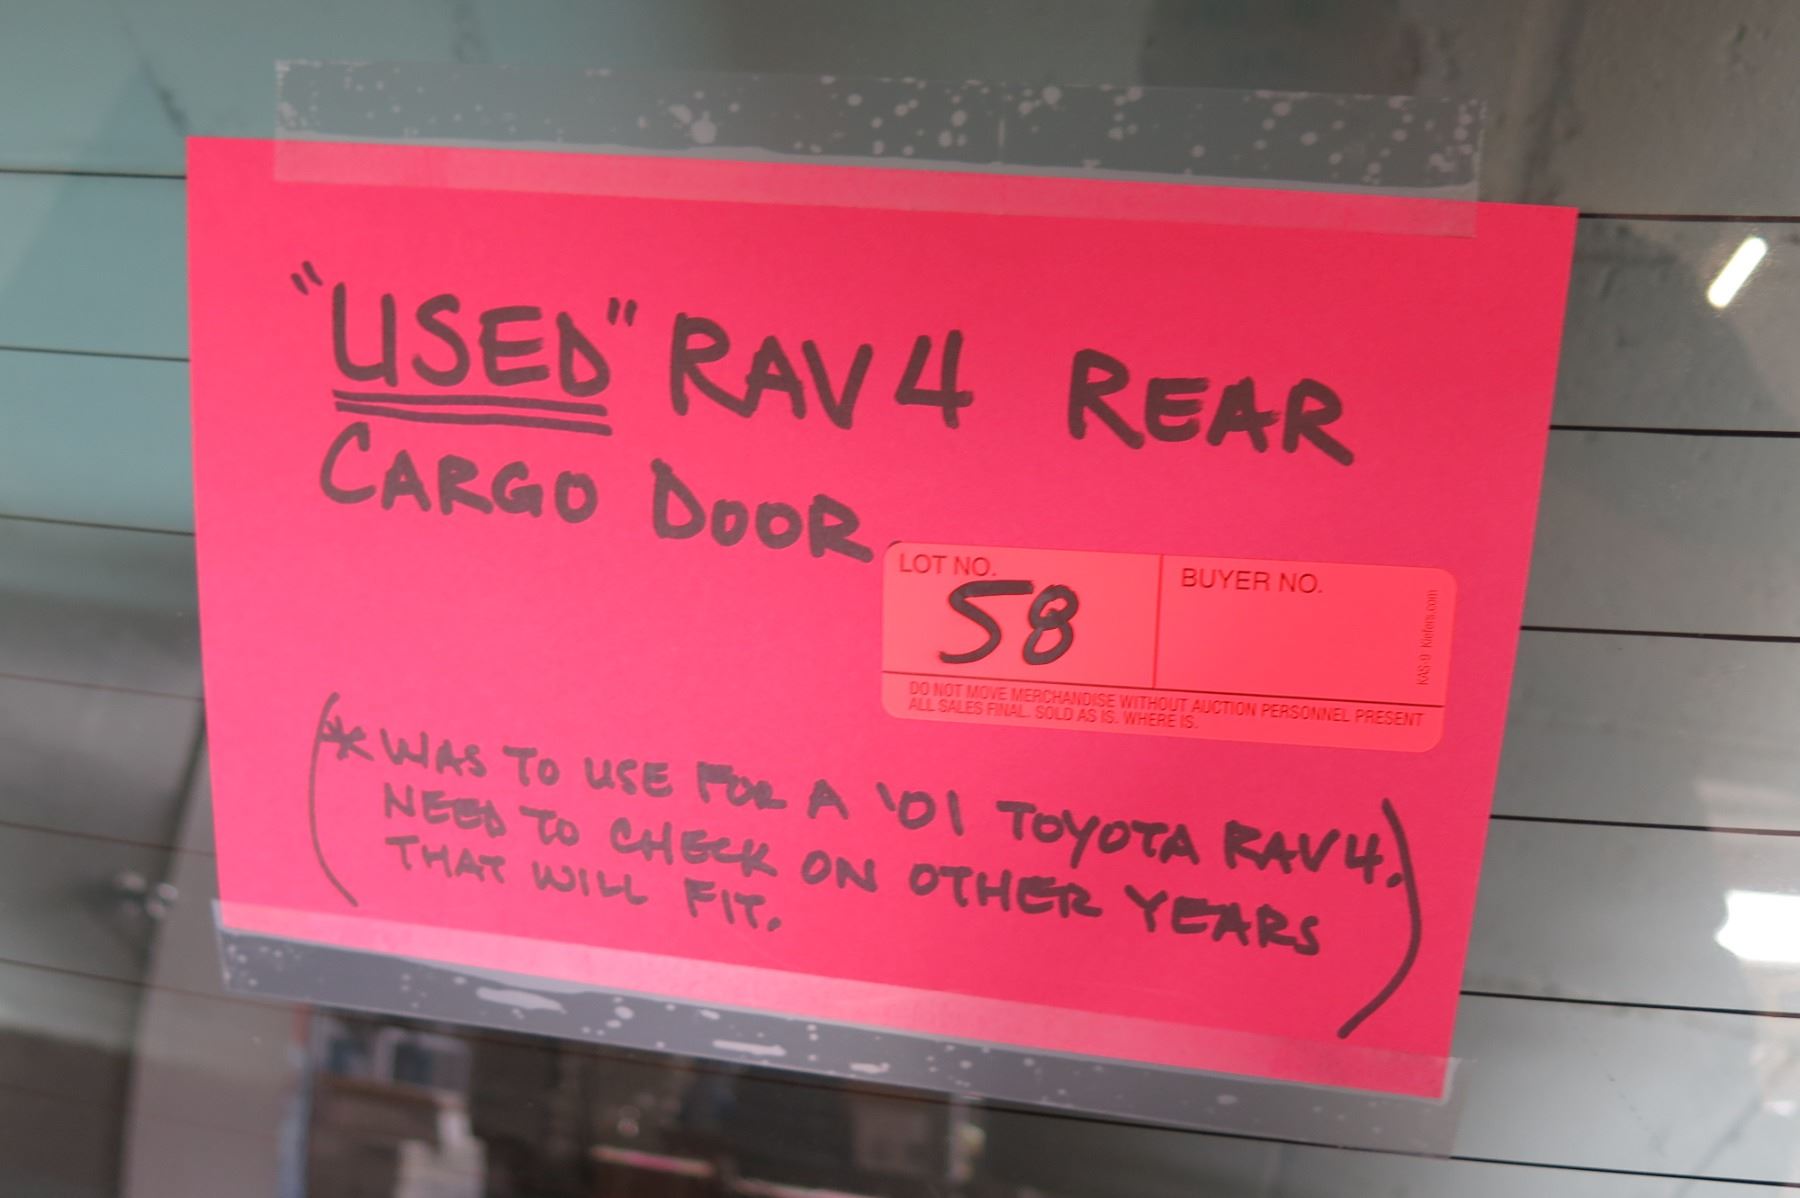 "USED" RAV4 REAR
CARGO DOOR
LOT NO.
58
BUYER NO.
KAS-9 Kiefers.com
DO NOT MOVE MERCHANDISE WITHOUT AUCTION PERSONNEL PRESENT
ALL SALES FINAL. SOLD AS IS. WHERE IS.
(* WAS TO USE FOR A '01 TOYOTA RAV4.
NEED TO CHECK ON OTHER YEARS
THAT WILL FIT.)